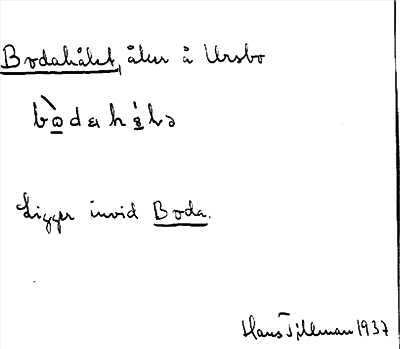 Bodahålet, åker å Ursbo
Ligger invid Boda.
Hans Tillman 1937